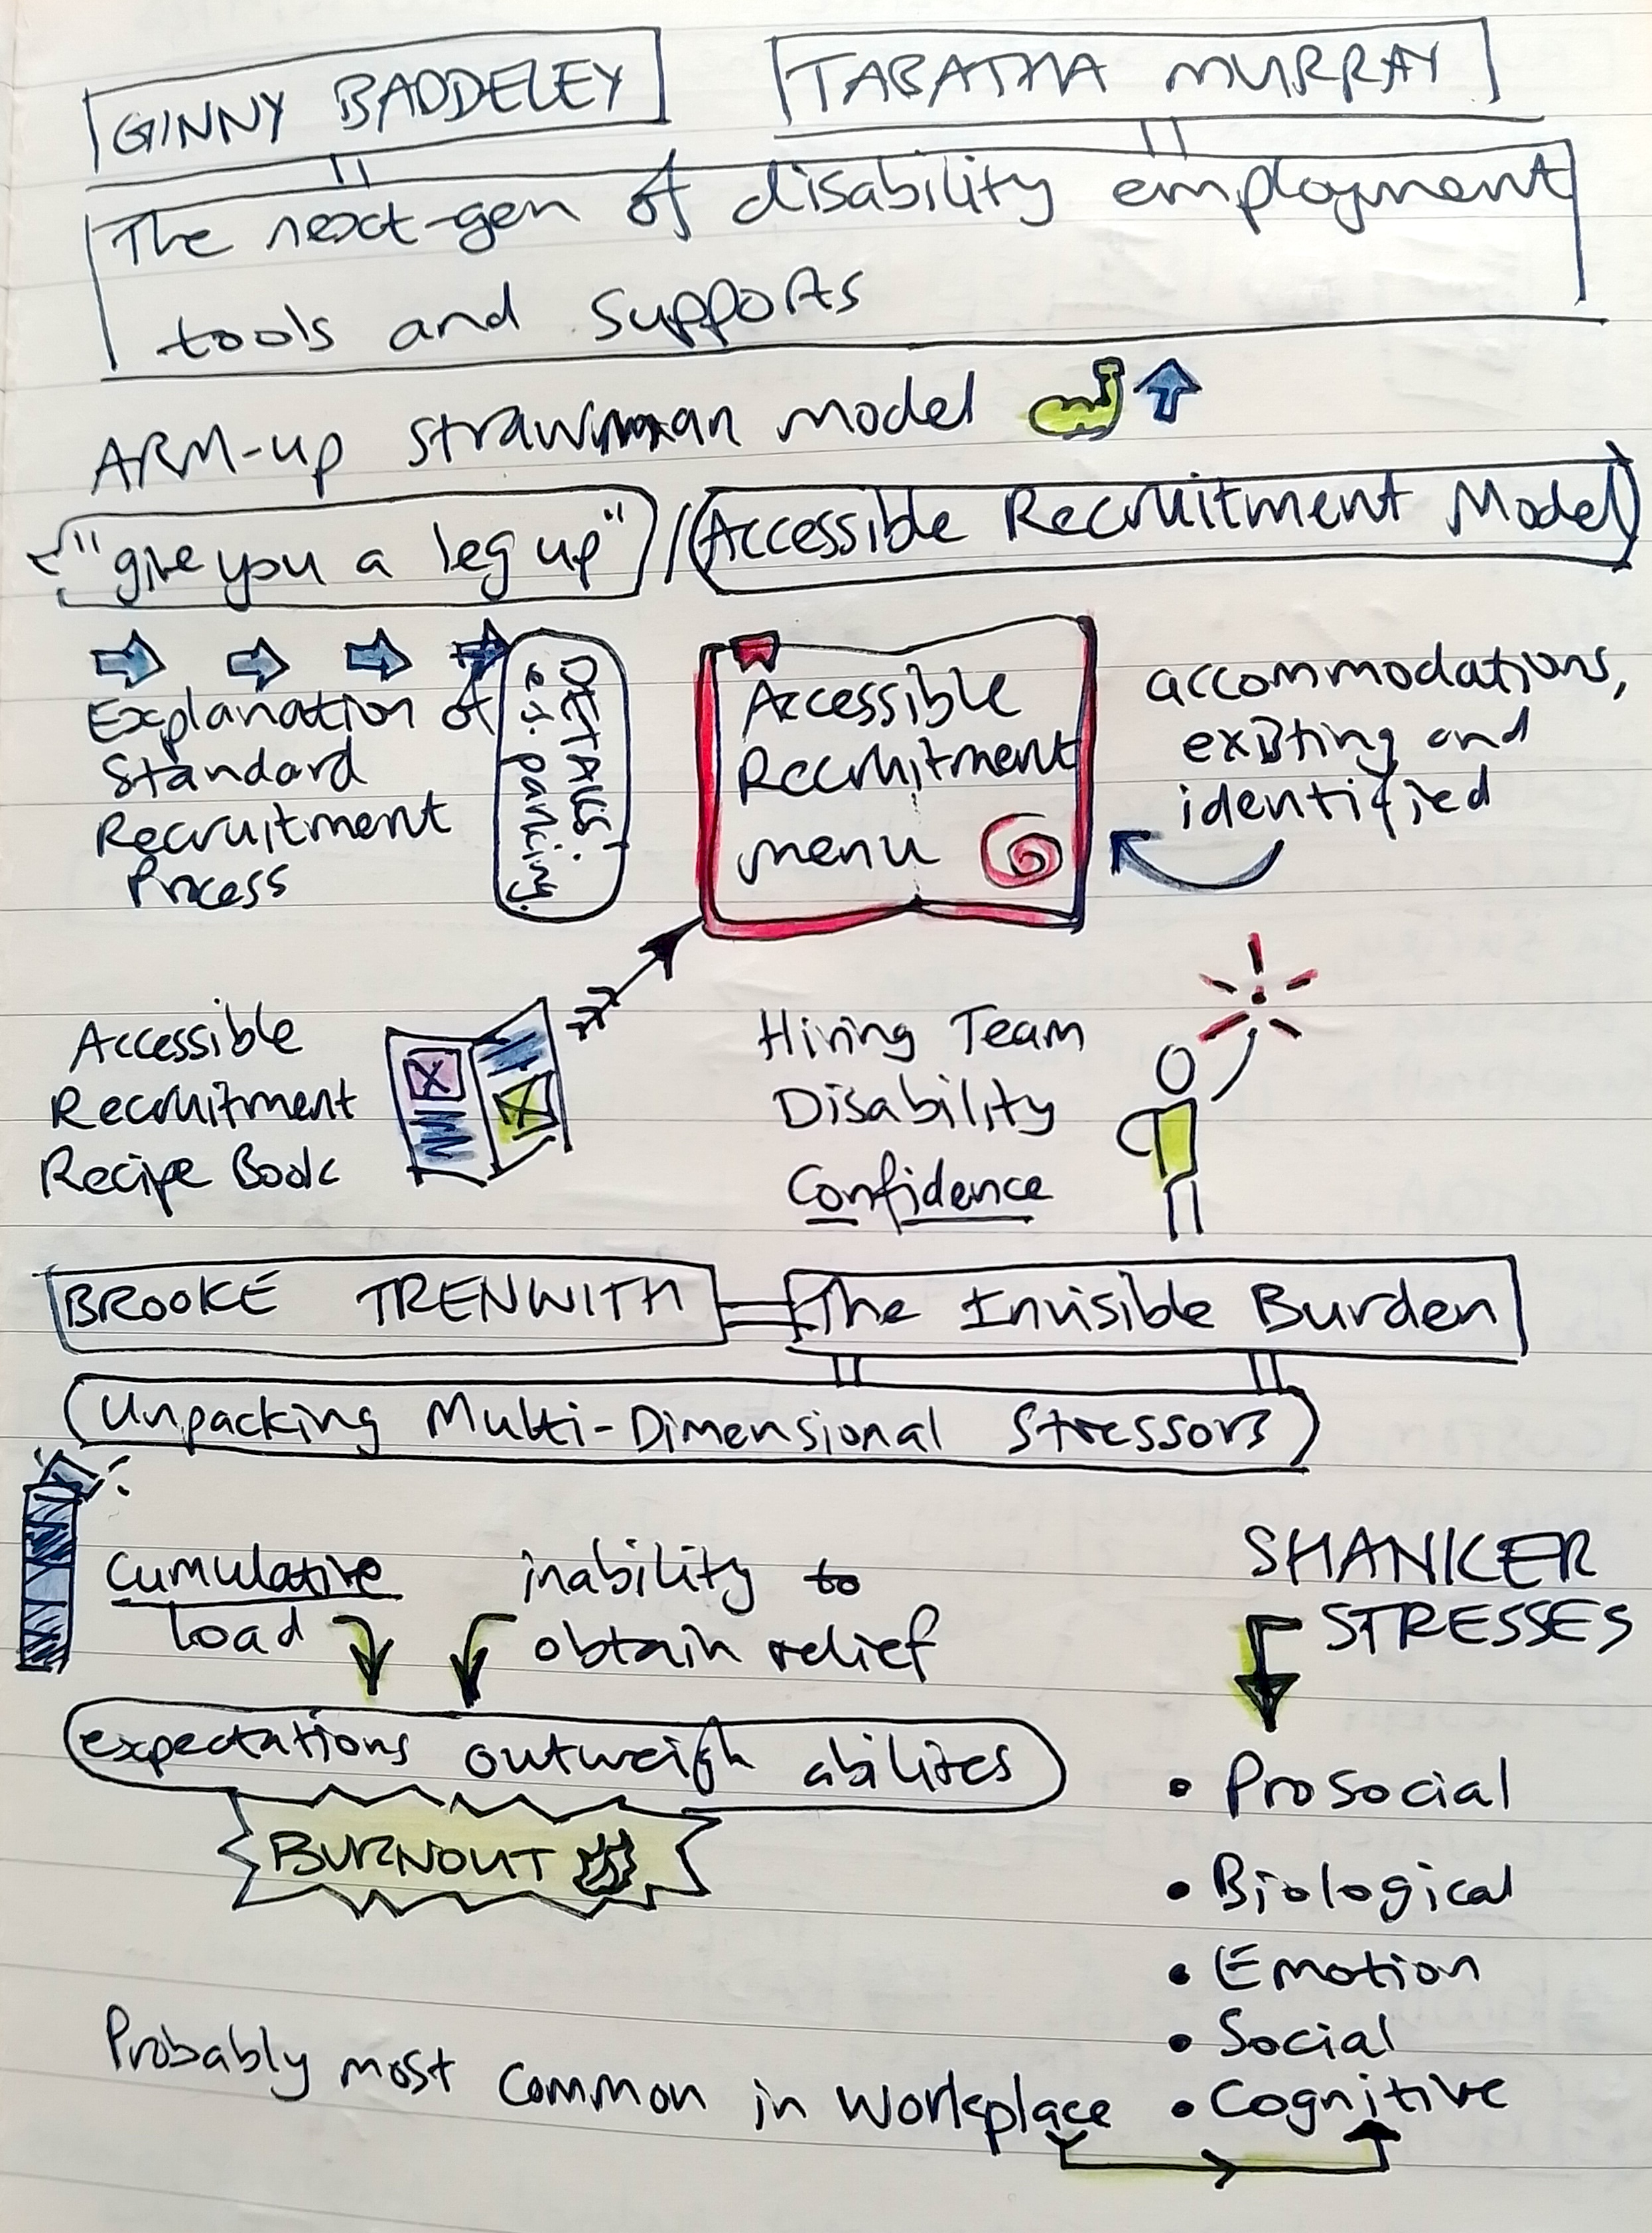 GINNY BADDELEY
TABATHA MURRAY
The next-gen of disability employment
tools and supports
ARM-up strawman model
"give you a leg up" / Accessible Recruitment Model
Explanation of
Standard
Recruitment
Process
DETAILS:
e.g. parking.
Accessible
Recruitment
menu
accommodations,
existing and
identified
Accessible
Recruitment
Recipe Book
Hiring Team
Disability
Confidence
BROOKE TRENWITH
The Invisible Burden
Unpacking Multi-Dimensional Stressors
Cumulative
load
inability to
obtain relief
expectations outweigh abilites
BURNOUT
SHANKER
STRESSES
• Prosocial
• Biological
• Emotion
• Social
• Cognitive
Probably most common in workplace